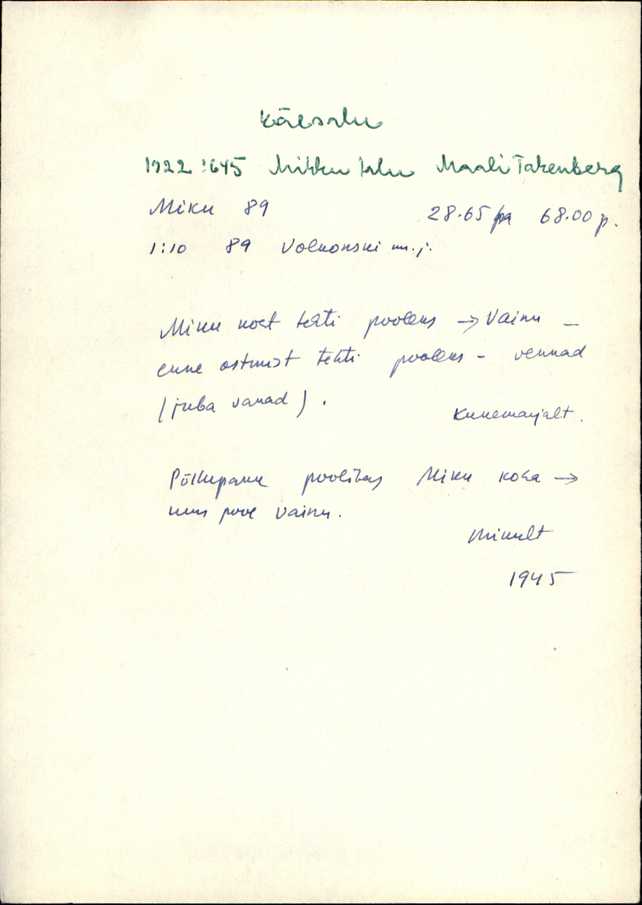 Käesalu
1922:645 Mikku talu Maali Takenberg
Miku 89 28.65 ha 68.00 p.
1:10 89 Volkonski m.j.
Miku koht tehti pooleks → Vainu –
enne ostmist tehti pooleks – vennad
(juba vanad).
Kunemarjalt.
Põllupanu poolitas Miku koha →
uus pool Vainu.
Minult
1945